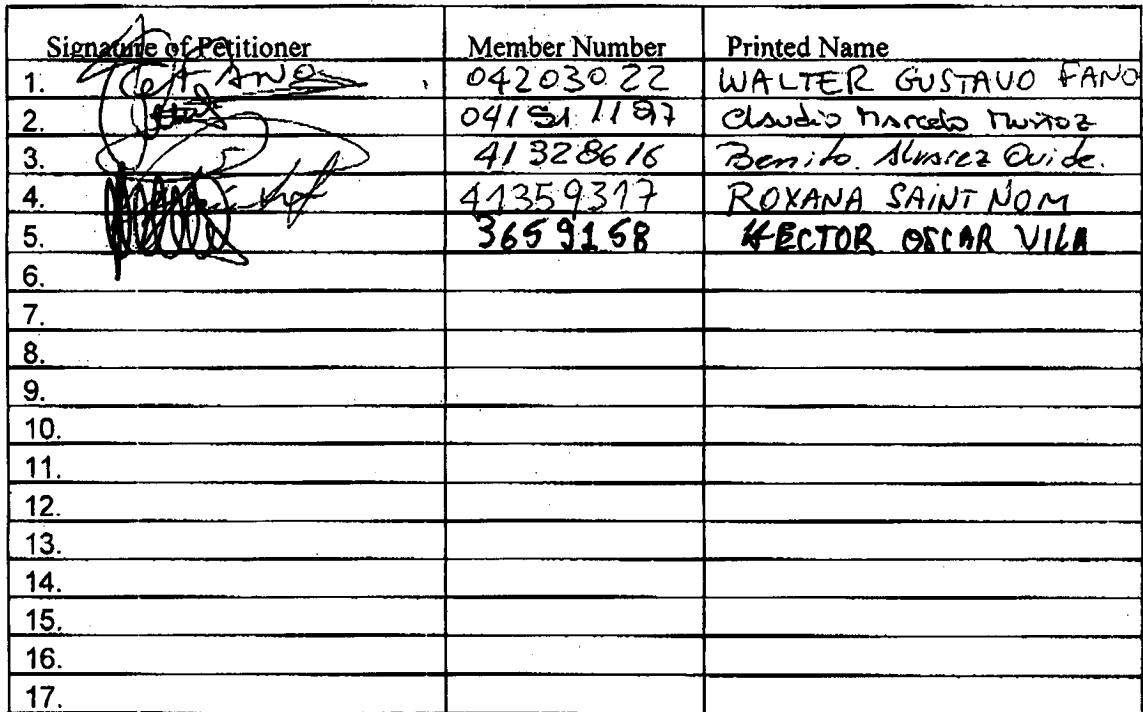 Signature of Petitioner Member Number Printed Name
1. 04203022 WALTER GUSTAVO FANO
2. Claudio Marcelo Muñoz
3. 41328616 Benito Alvarez Ovide.
4. 41359317 ROXANA SAINT NOM
5. 3659158 HECTOR OSCAR VILA
6.
7.
8.
9.
10.
11.
12.
13.
14.
15.
16.
17.